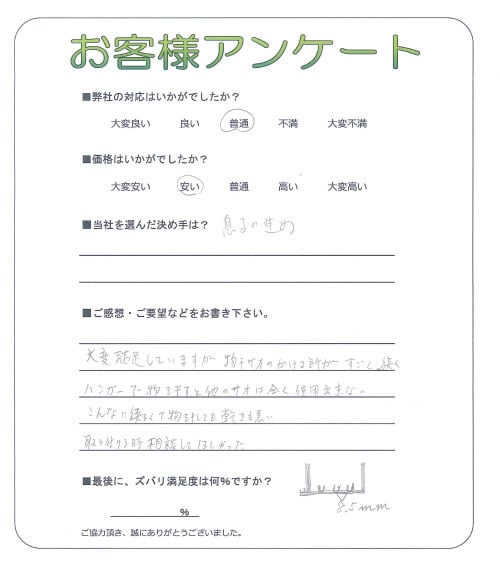 お客様アンケート
■弊社の対応はいかがでしたか？
大変良い 良い 普通 不満 大変不満
■価格はいかがでしたか？
大変安い 安い 普通 高い 大変高い
■当社を選んだ決め手は？ 息子の進め
■ご感想・ご要望などをお書き下さい。
大変満足していますが 物干サオのかける所が すごく狭く
ハンガーで物を干すと他のサオは全く使用出来ない
こんなに狭くて物干しても乾きも悪い
取り付る時相談してほしかった
■最後に、ズバリ満足度は何%ですか？
%
8.5mm
ご協力頂き、誠にありがとうございました。